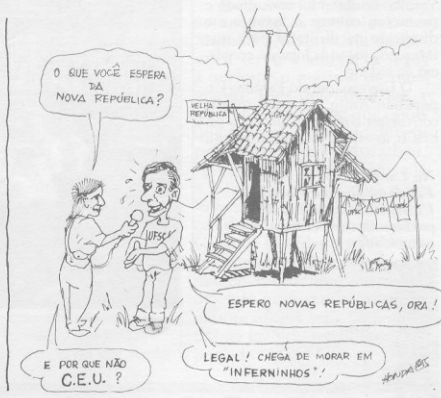 O QUE VOCÊ ESPERA
DA
NOVA REPÚBLICA?
VELHA
REPÚBLICA
UFSC
UFSC
UFSC
ESPERO NOVAS REPÚBLICAS, ORA!
E POR QUE NÃO
C.E.U. ?
LEGAL! CHEGA DE MORAR EM
"INFERNINHOS"!
HONDA/85